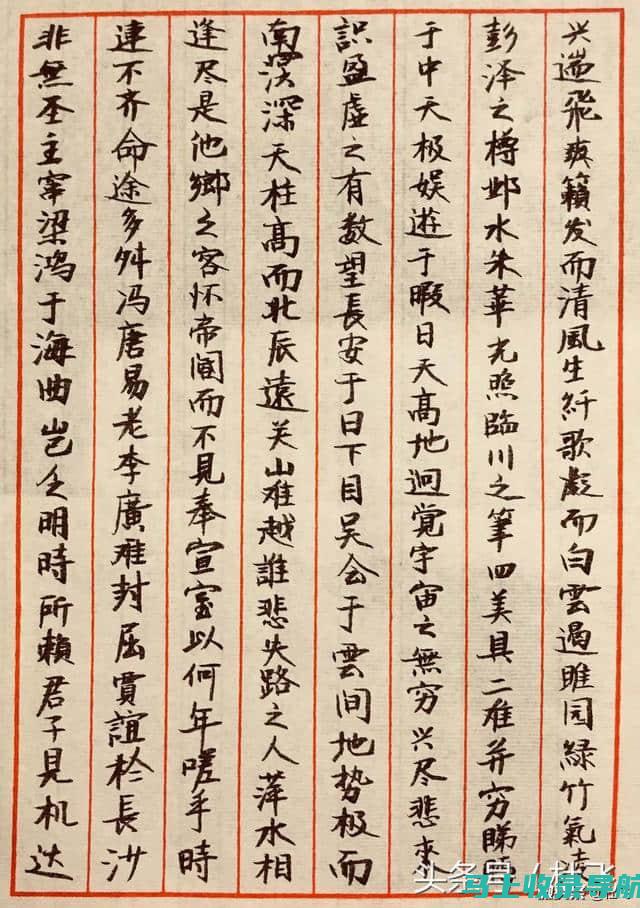 兴遄飛爽籟发而清風生纤歌凝而白雲遏睢园緑竹氣凌
彭泽之樽邺水朱華光照臨川之筆四美具二难并穷睇
于中天极娱遊于暇日天高地迥觉宇宙之無穷兴尽悲来
識盈虚之有数望長安于日下目吴会于雲间地势极而
南溟深天柱高而北辰遠关山难越誰悲失路之人萍水相
逢尽是他鄉之客怀帝阍而不見奉宣室以何年嗟乎時
連不齐命途多舛冯唐易老李廣难封屈賈誼於長沙
非無圣主窜梁鸿于海曲岂乏明時所賴君子見机达
头条号
马上收录导航